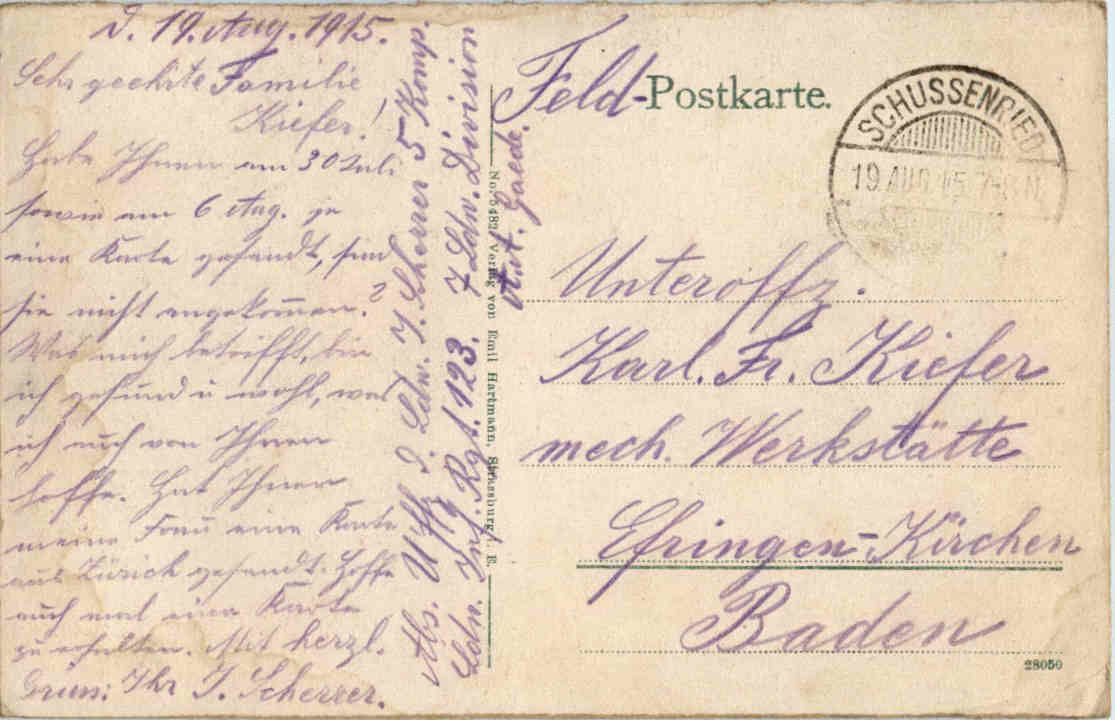 D. 19. Aug. 1915.
Sehr geehrte Familie
Kiefer!
Habe Ihnen am 30 Juli
sowie am 6 Aug. je
eine Karte gesandt, sind
sie nicht angekommen?
Was mich betrifft, bin
ich gesund u wohl, was
ich auch von Ihnen
hoffe. Hat Ihnen
meine Frau eine Karte
aus Zürich gesandt. Hoffe
auch mal eine Karte
zu erhalten. Mit herzl.
Gruss: Ihr J. Scherrer.
Abs. Uffz d. Ldw. J. Scherrer 5 Komp.
Ldw. Inf. Rgt. 123. 7 Ldw. Division
Amt. Gaede.
No. 5482 Verlag von Emil Hartmann, Strassburg i. E.
Feld-Postkarte.
SCHUSSENRIED
19 AUG 15 7-8 N
Unteroffz.
Karl. Fr. Kiefer
mech. Werkstätte
Efringen-Kirchen
Baden
28050